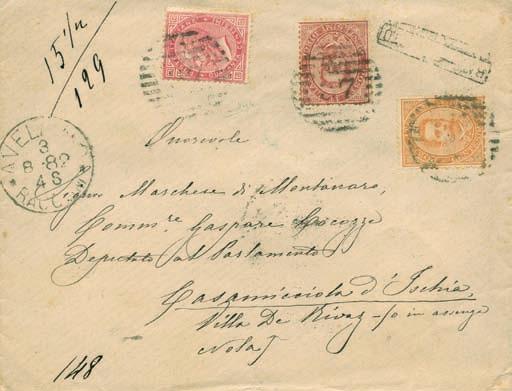 15/11
129
AVEL
3
8 89
4 S
RACC
Onorevole
Signor Marchese di Montanaro,
Comm.re Gaspare Cocozza
Deputato al Parlamento
Casamicciola d'Ischia,
Villa De Rivaz - /o in assenza
Nola
148